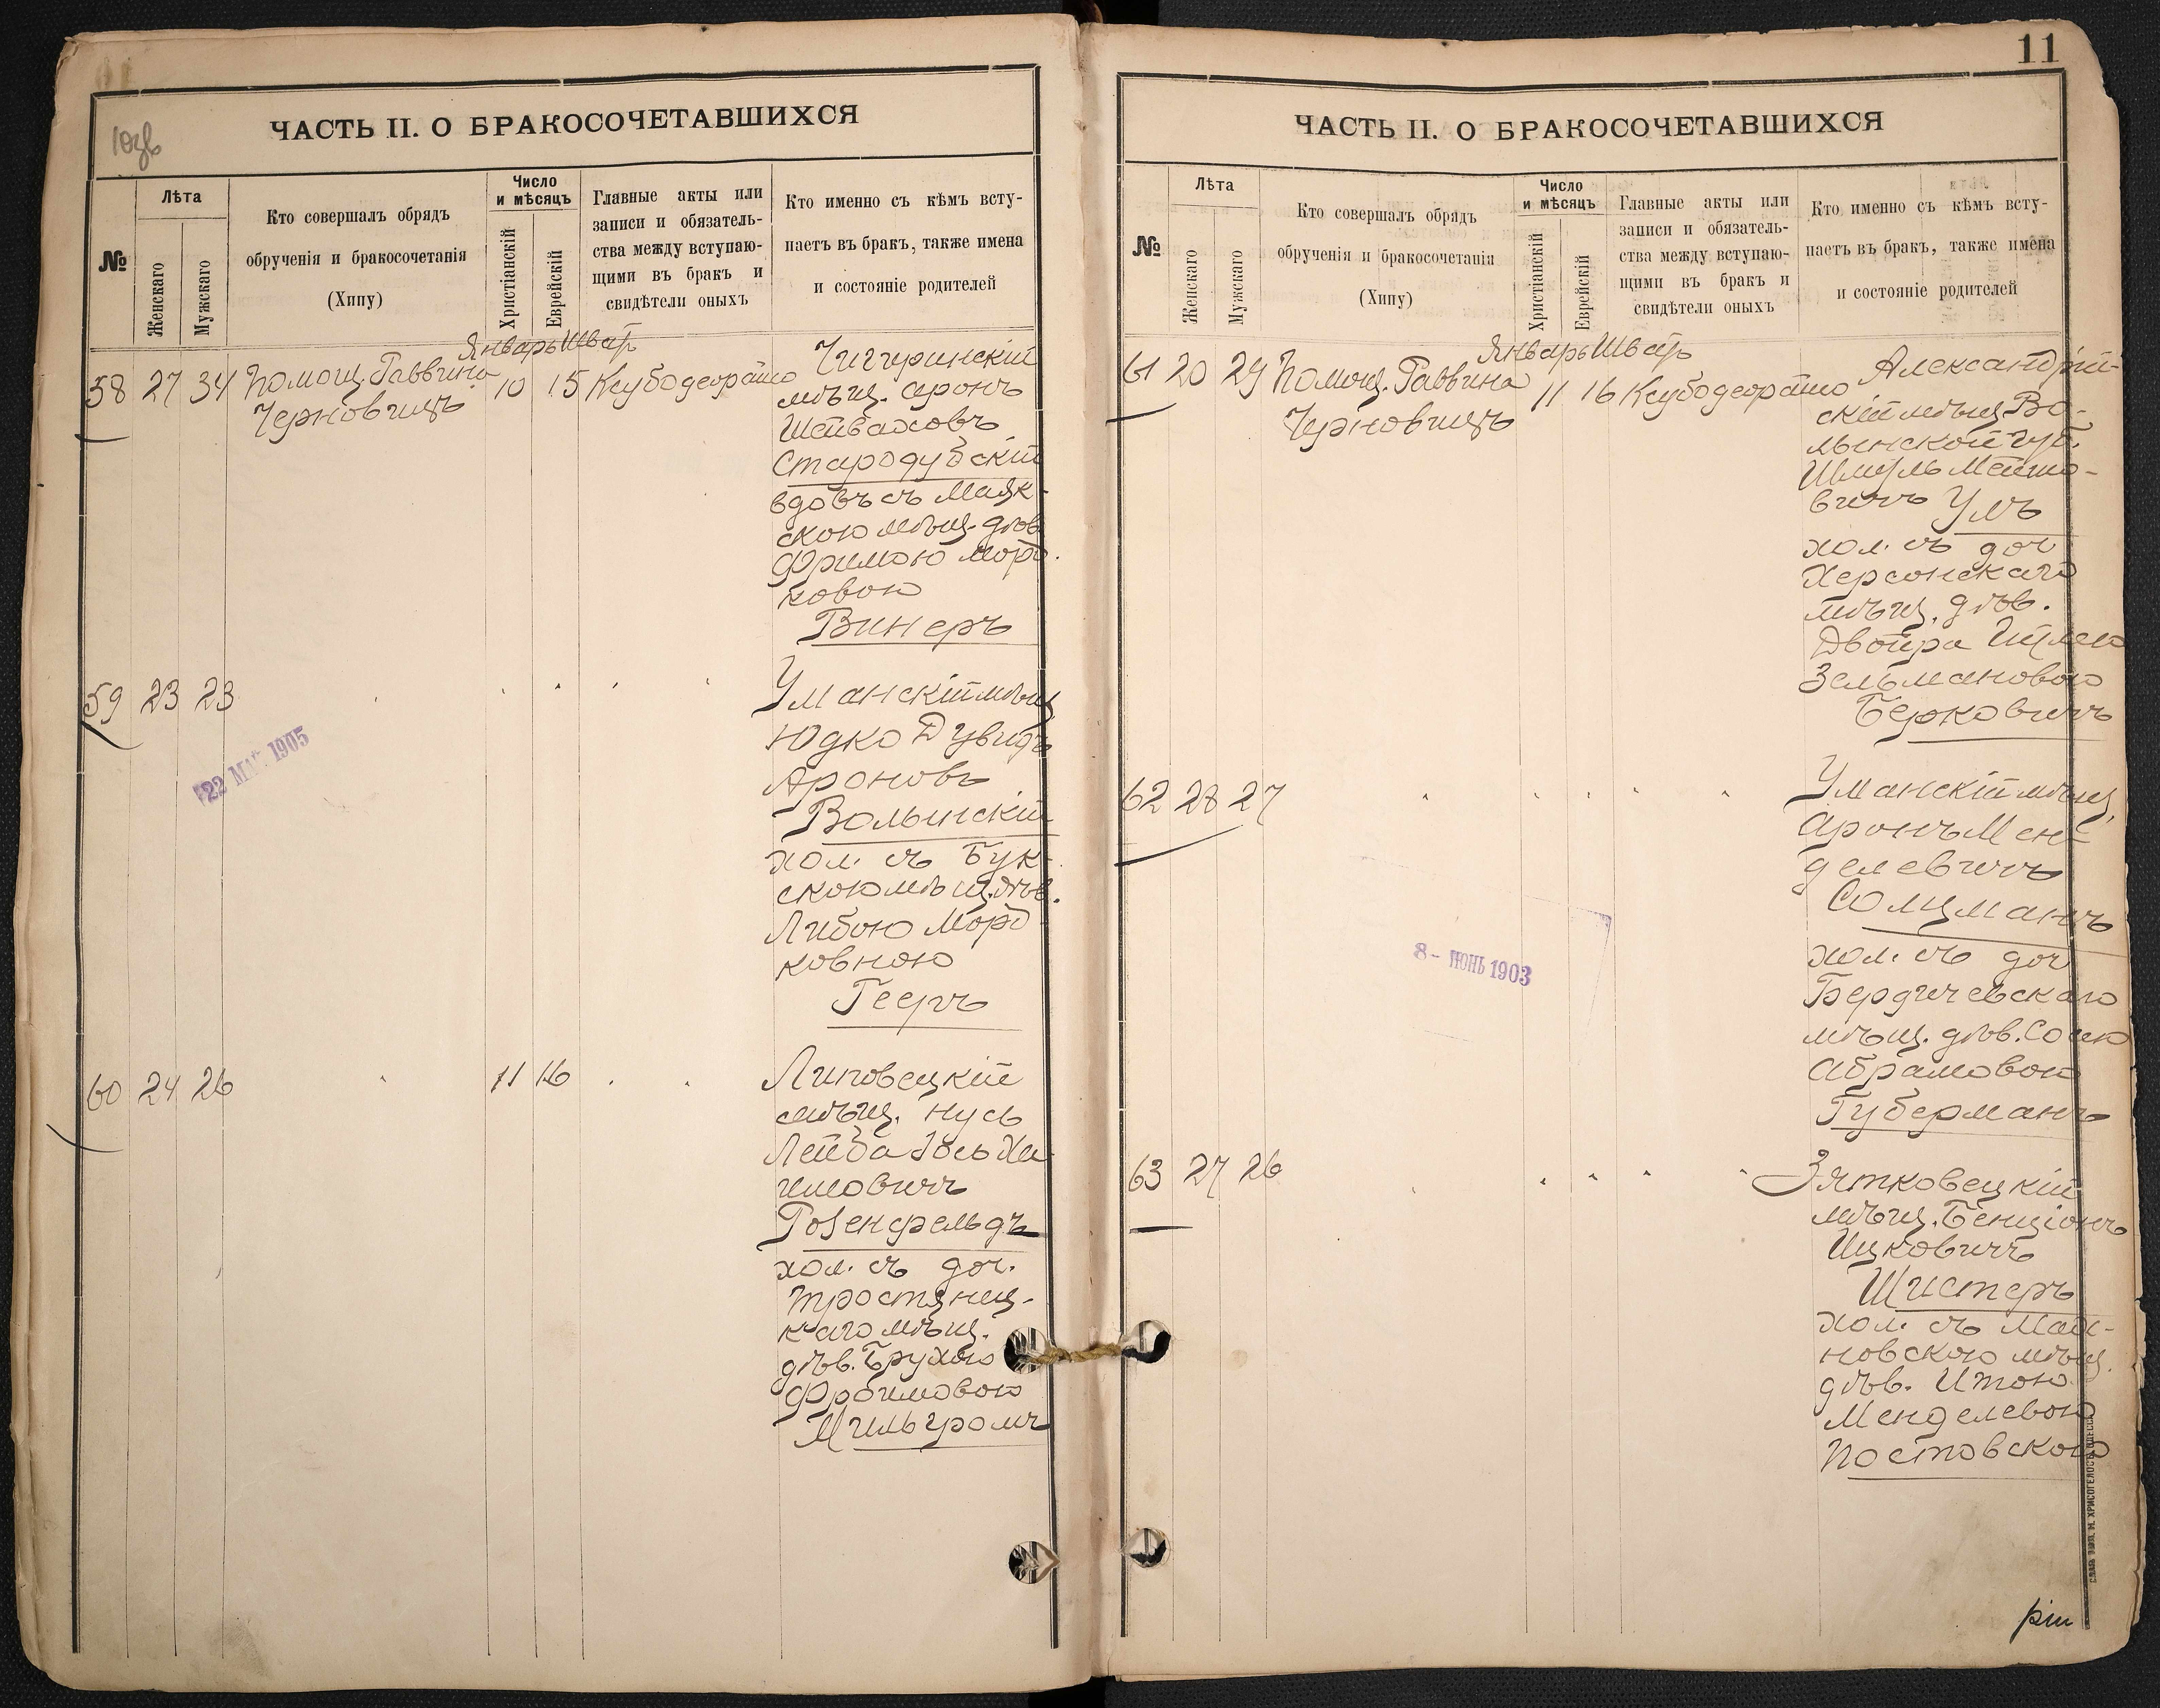 11
ЧАСТЬ II. О БРАКОСОЧЕТАВШИХСЯ
№
Лѣта
Женскаго
Мужскаго
Кто совершалъ обрядъ
обрученія и бракосочетанія
(Хипу)
Число
и мѣсяцъ
Христіанскій
Еврейскій
Главные акты или
записи и обязатель-
ства между вступаю-
щими въ бракъ и
свидѣтели оныхъ
Кто именно съ кѣмъ всту-
паетъ въ бракъ, также имена
и состояніе родителей
Январь Шват
58 27 34 Помощ. Раввина
Черновицъ
10 15
Чигиринскій
мѣщ. Аронъ
Шейваховъ
Стародубскій
вдовъ съ Маяк-
скою мѣщ. дѣв.
Фримою Морд.
ковою
Винеръ
59 23 23
Уманскій мѣщ.
Юдко Дувидъ
Ароновъ
Волынскій
хол. съ Бук-
скою мѣщ. дѣв.
Либою Морд
ковною
Гееръ
22 МАЙ 1905
60 24 26
11 16
Липовецкій
мѣщ. Нусь
Лейба Іось Ха-
имовичъ
Розенфельдъ
хол. съ доч.
Тростянец-
каго мѣщ.
дѣв. Брухою
Фроимовою
Мильгромъ
ЧАСТЬ II. О БРАКОСОЧЕТАВШИХСЯ
№
Лѣта
Женскаго
Мужскаго
Кто совершалъ обрядъ
обрученія и бракосочетанія
(Хипу)
Число
и мѣсяцъ
Христіанскій
Еврейскій
Главные акты или
записи и обязатель-
ства между вступаю-
щими въ бракъ и
свидѣтели оныхъ
Кто именно съ кѣмъ всту-
паетъ въ бракъ, также имена
и состояніе родителей
Январь Шват
61 20 29 Помощ. Раввина
Черновицъ
11 16
Александрій-
скій мѣщ. Во-
лынской губ.
Шмуль Мейшо-
вичъ Умъ
хол. съ доч
Херсонскаго
мѣщ. дѣв.
Двойра
Зельмановою
Берковичъ
62 28 27
Уманскій мѣщ.
Аронъ Мен-
делевичъ
Солцманъ
хол. съ доч
Бердичевскаго
мѣщ. дѣв. Сосею
Абрамовою
Губерманъ
8 - ИЮНЬ 1903
63 27 26
Зятковецкій
мѣщ. Бенціонъ
Ицковичъ
Шистеръ
хол. съ
новскою мѣщ.
дѣв. Итою
Менделевою
Постовскою